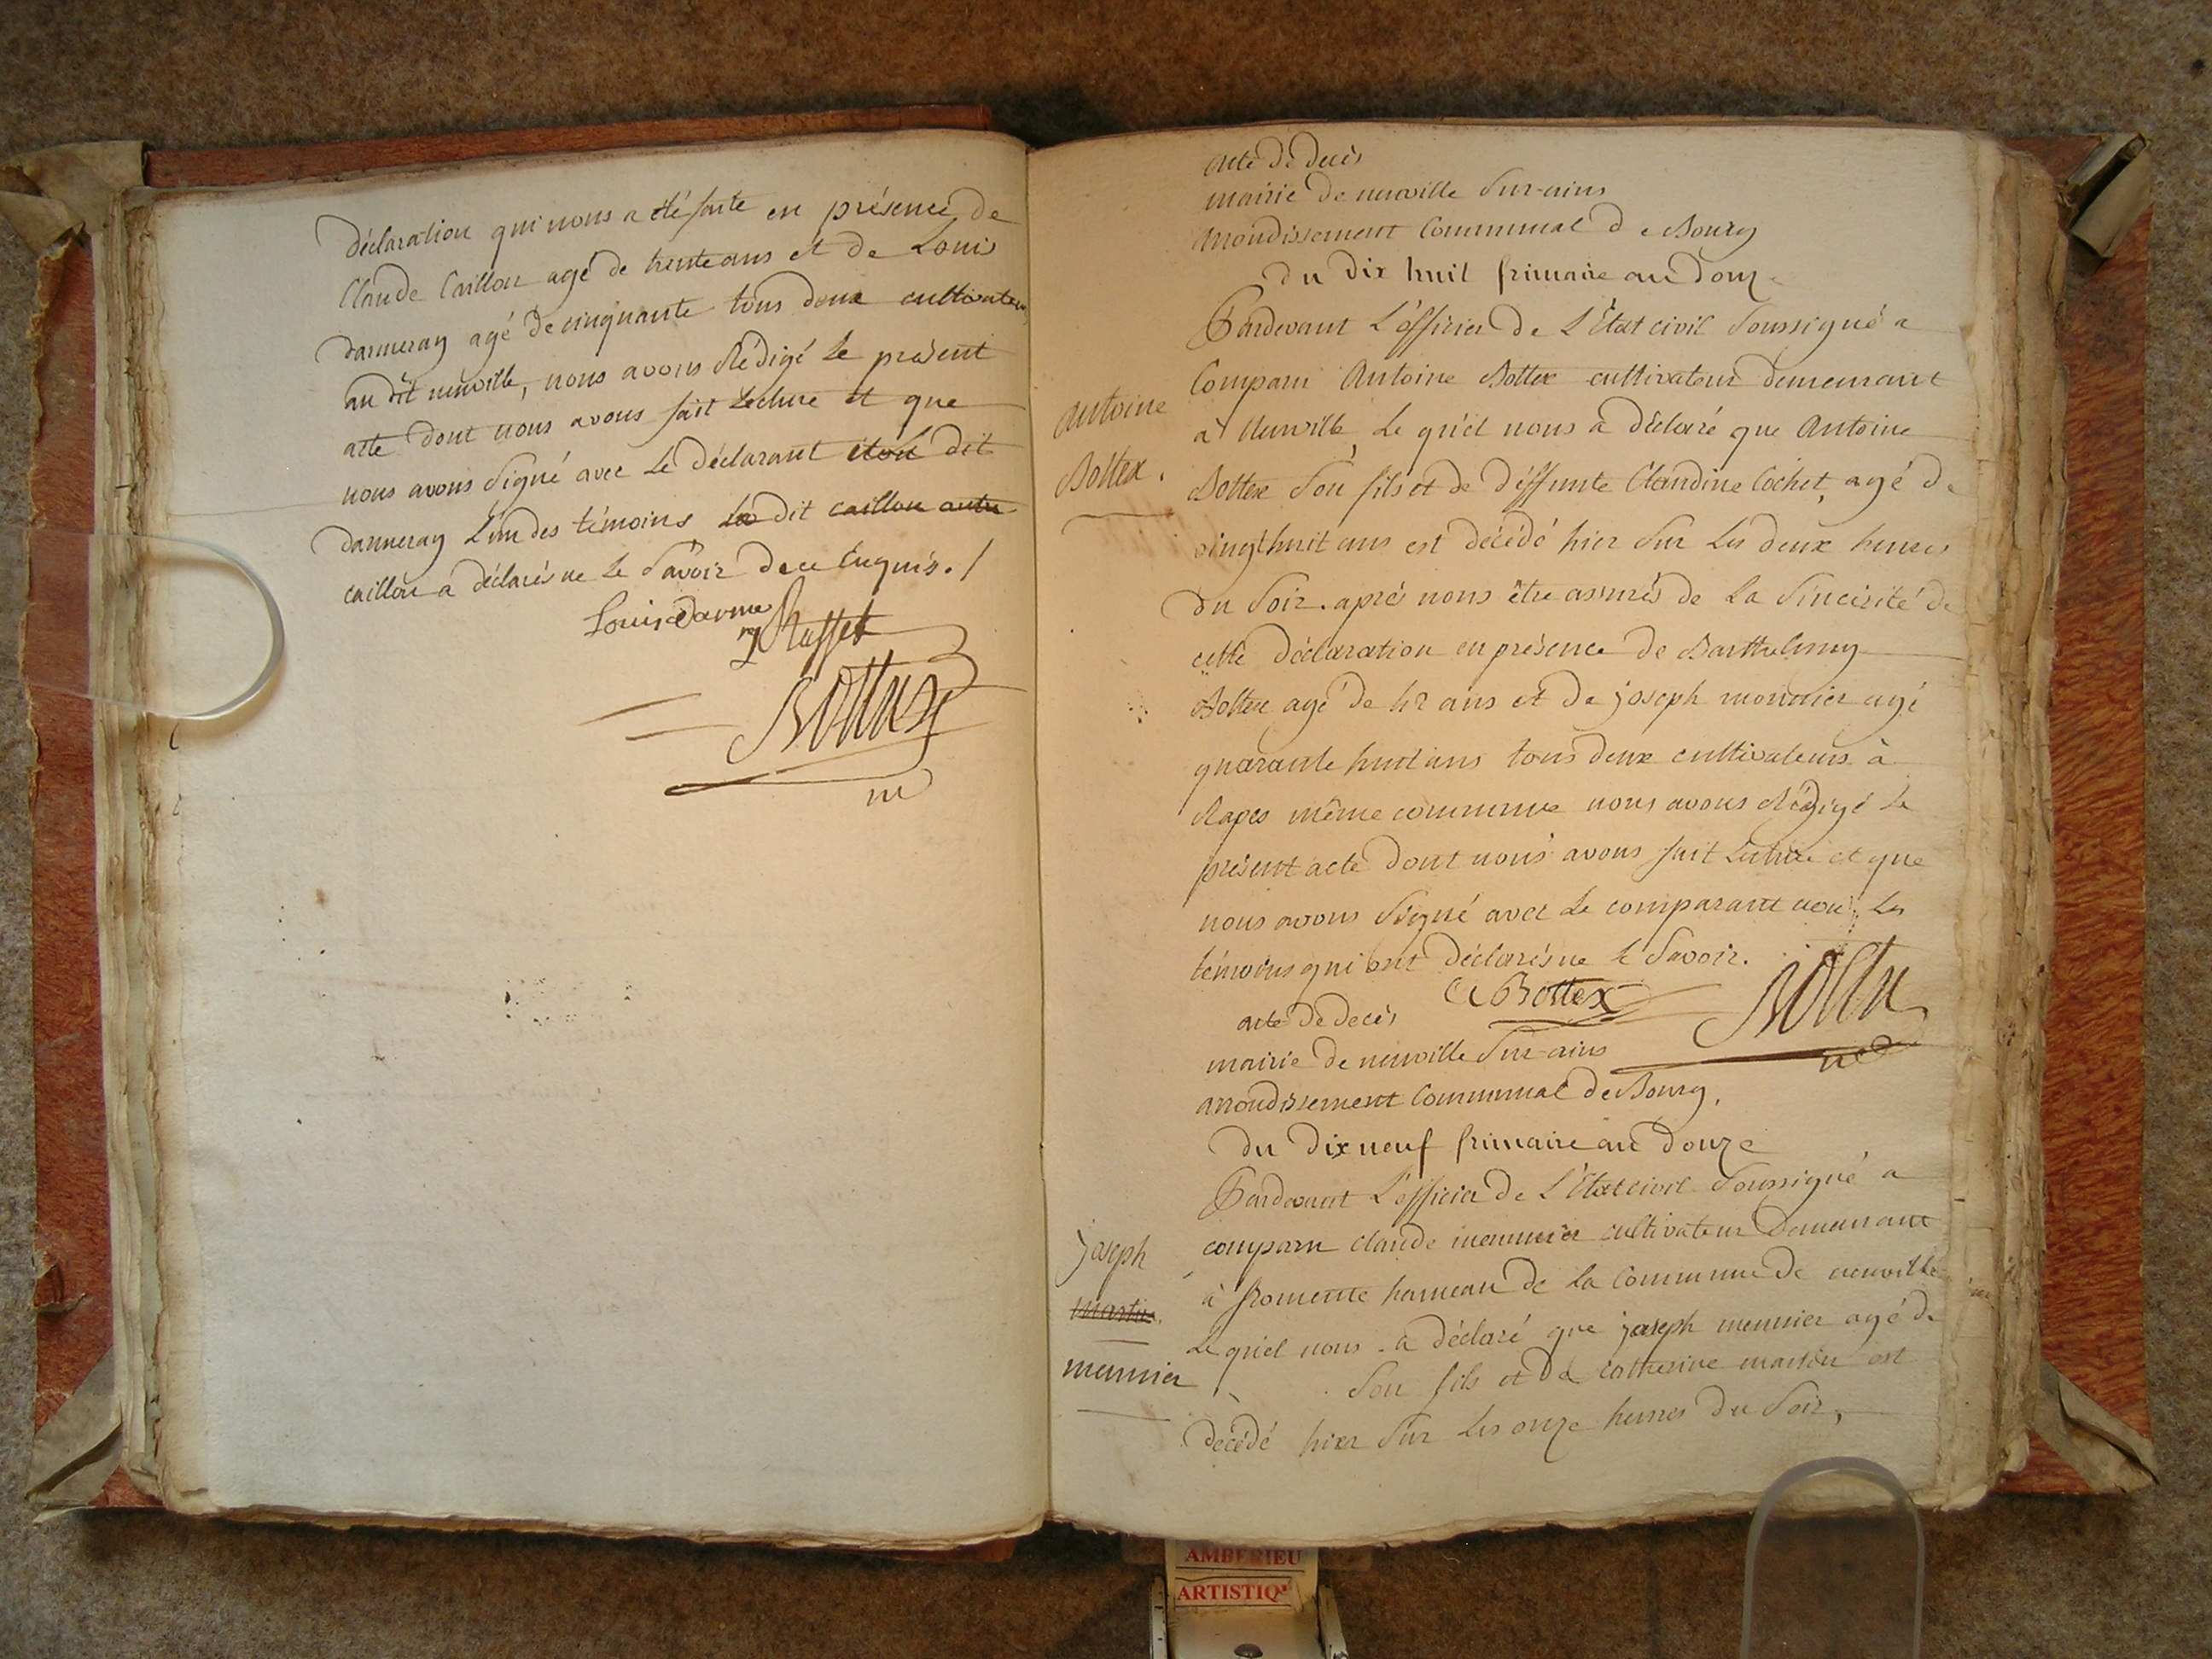 déclaration qui nous a été faite en présence de
Claude Caillon agé de trente ans et de Louis
Darmeray agé de cinquante tous deux cultivateurs
au dit neuville, nous avons Rédigé le présent
acte dont nous avons fait Lecture et que
nous avons Signé avec Le déclarant et le dit
Darmeray L'un des témoins Le dit caillon autre
caillon a déclarés ne le Savoir de ce Enquis. /
Louis darme
ray
Bottex
m
acte de decès
mairie de neuville Sur-ains
arrondissement Communal de Bourg
du dix huit frimaire an douze
Pardevant L'officier de L'État civil Soussigné a
Comparu Antoine Bottex cultivateur demeurant
à Neuville, Le quel nous a déclaré que Antoine
Bottex Son fils et de déffunte Claudine Cochet, agé de
vingt huit ans est décédé hier Sur les deux heures
du Soir. après nous être assurés de La Sincérité de
cette déclaration en présence de Barthelemy
Bottex agé de 42 ans et de joseph monnier agé
quarante huit ans tous deux cultivateurs à
Rapes même commune nous avons Rédigé Le
présent acte dont nous avons fait Lecture et que
nous avons Signé avec Le comparant non Les
témoins qui ont déclarés ne le Savoir.
Antoine
Bottex.
A Bottex
Bottex
acte de decès
mairie de neuville Sur-ains
arrondissement Communal de Bourg,
du dix neuf frimaire an douze
Pardevant L'officier de L'État civil Soussigné a
comparu claude meunier cultivateur Demeurant
à fromente hameau de la Commune de neuville
Le quel nous a déclaré que joseph meunier agé de
Son fils et de catherine martin est
decédé hier Sur les onze heures du Soir,
joseph
martin.
meunier
AMBERIEU
ARTISTIQ